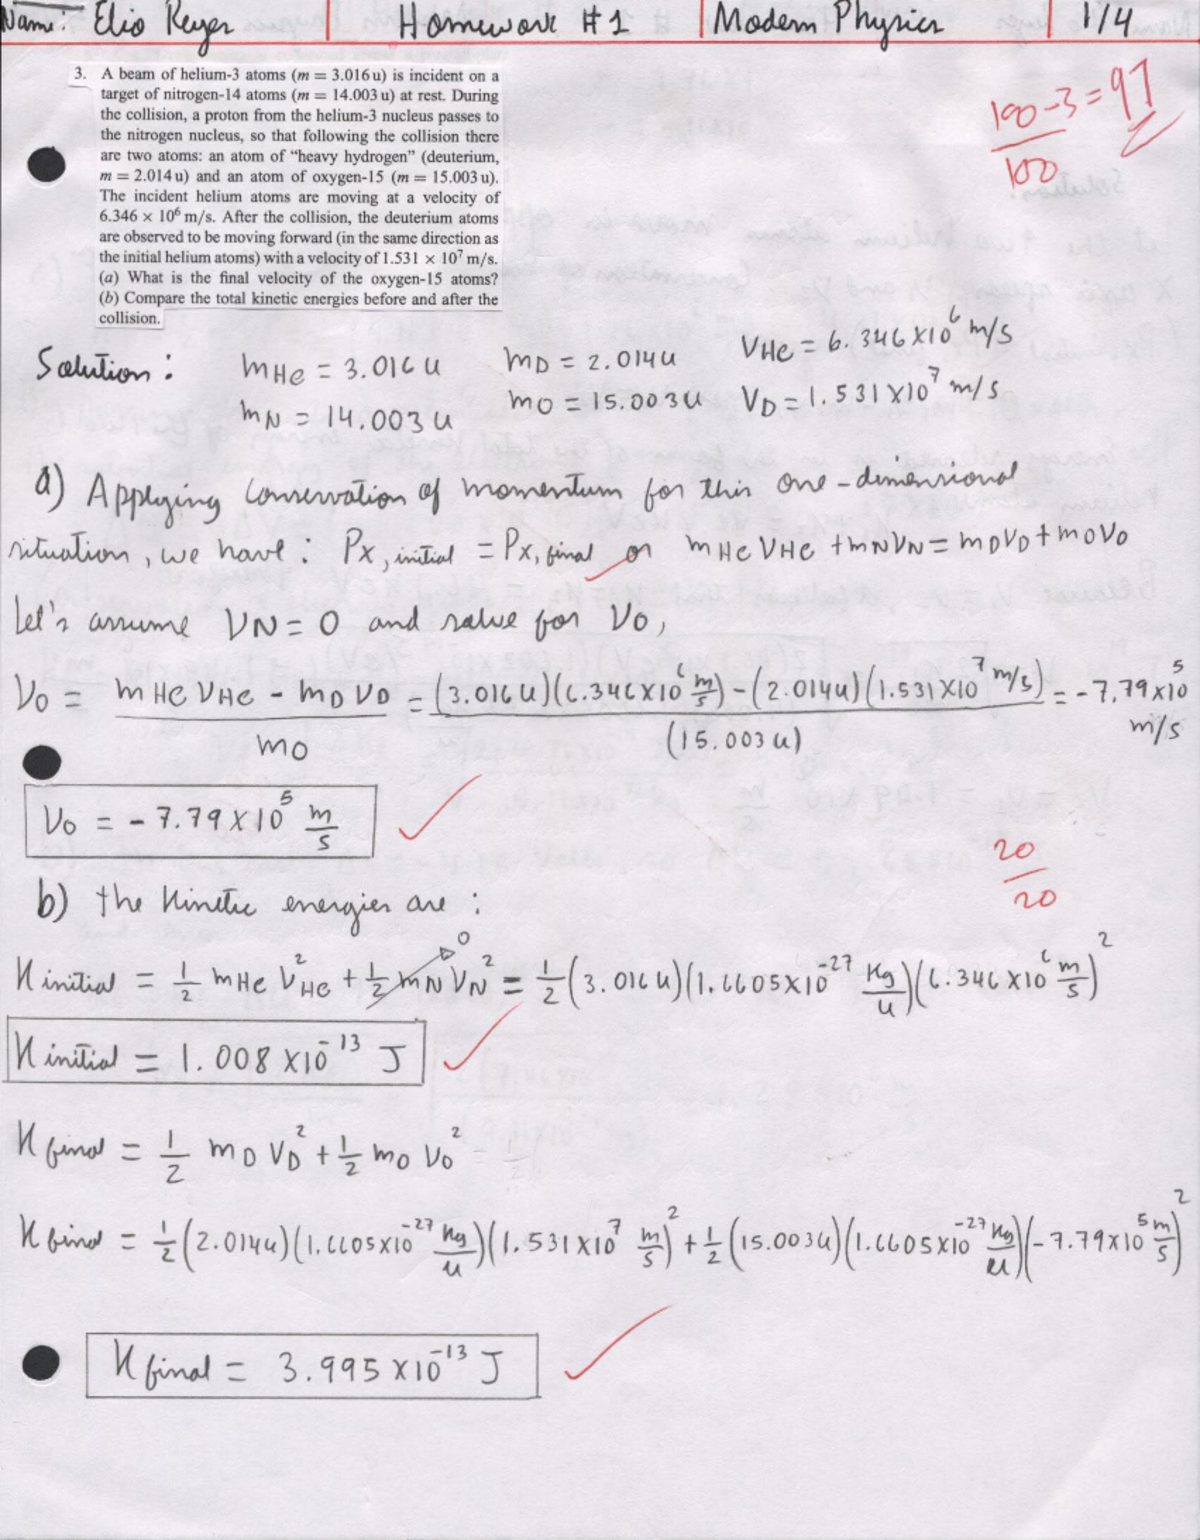 Name: Elio Reyes | Homework #1 | Modern Physics | 1/4
100-3 = 97
100
3. A beam of helium-3 atoms (m = 3.016 u) is incident on a
target of nitrogen-14 atoms (m = 14.003 u) at rest. During
the collision, a proton from the helium-3 nucleus passes to
the nitrogen nucleus, so that following the collision there
are two atoms: an atom of “heavy hydrogen” (deuterium,
m = 2.014 u) and an atom of oxygen-15 (m = 15.003 u).
The incident helium atoms are moving at a velocity of
6.346 × 10⁶ m/s. After the collision, the deuterium atoms
are observed to be moving forward (in the same direction as
the initial helium atoms) with a velocity of 1.531 × 10⁷ m/s.
(a) What is the final velocity of the oxygen-15 atoms?
(b) Compare the total kinetic energies before and after the
collision.
Solution: mHe = 3.016 u mD = 2.014 u VHe = 6.346 x 10⁶ m/s
mN = 14.003 u mO = 15.003 u VD = 1.531 x 10⁷ m/s
a) Applying conservation of momentum for this one-dimensional
situation, we have: Px,initial = Px,final or mHe VHe + mN VN = mD VD + mO VO
Let's assume VN = 0 and solve for VO,
VO = (mHe VHe - mD VD)/mO = ((3.016 u)(6.346 x 10⁶ m/s) - (2.014 u)(1.531 x 10⁷ m/s))/(15.003 u) = -7.79 x 10⁵ m/s
VO = -7.79 x 10⁵ m/s
20
20
b) The Kinetic energies are:
Kinitial = 1/2 mHe VHe² + 1/2 mN VN² 0 = 1/2 (3.016 u)(1.6605 x 10⁻²⁷ Kg/u)(6.346 x 10⁶ m/s)²
Kinitial = 1.008 x 10⁻¹³ J
Kfinal = 1/2 mD VD² + 1/2 mO VO²
Kfinal = 1/2 (2.014 u)(1.6605 x 10⁻²⁷ Kg/u)(1.531 x 10⁷ m/s)² + 1/2 (15.003 u)(1.6605 x 10⁻²⁷ Kg/u)(-7.79 x 10⁵ m/s)²
Kfinal = 3.995 x 10⁻¹³ J